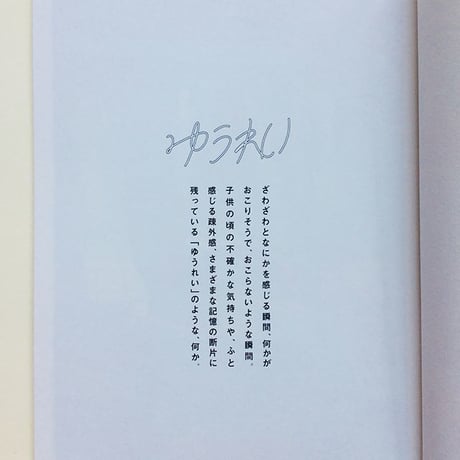 ゆうれい
ざわざわとなにかを感じる瞬間、何かが
おこりそうで、おこらないような瞬間。
子供の頃の不確かな気持ちや、ふと
感じる疎外感、さまざまな記憶の断片に
残っている「ゆうれい」のような、何か。